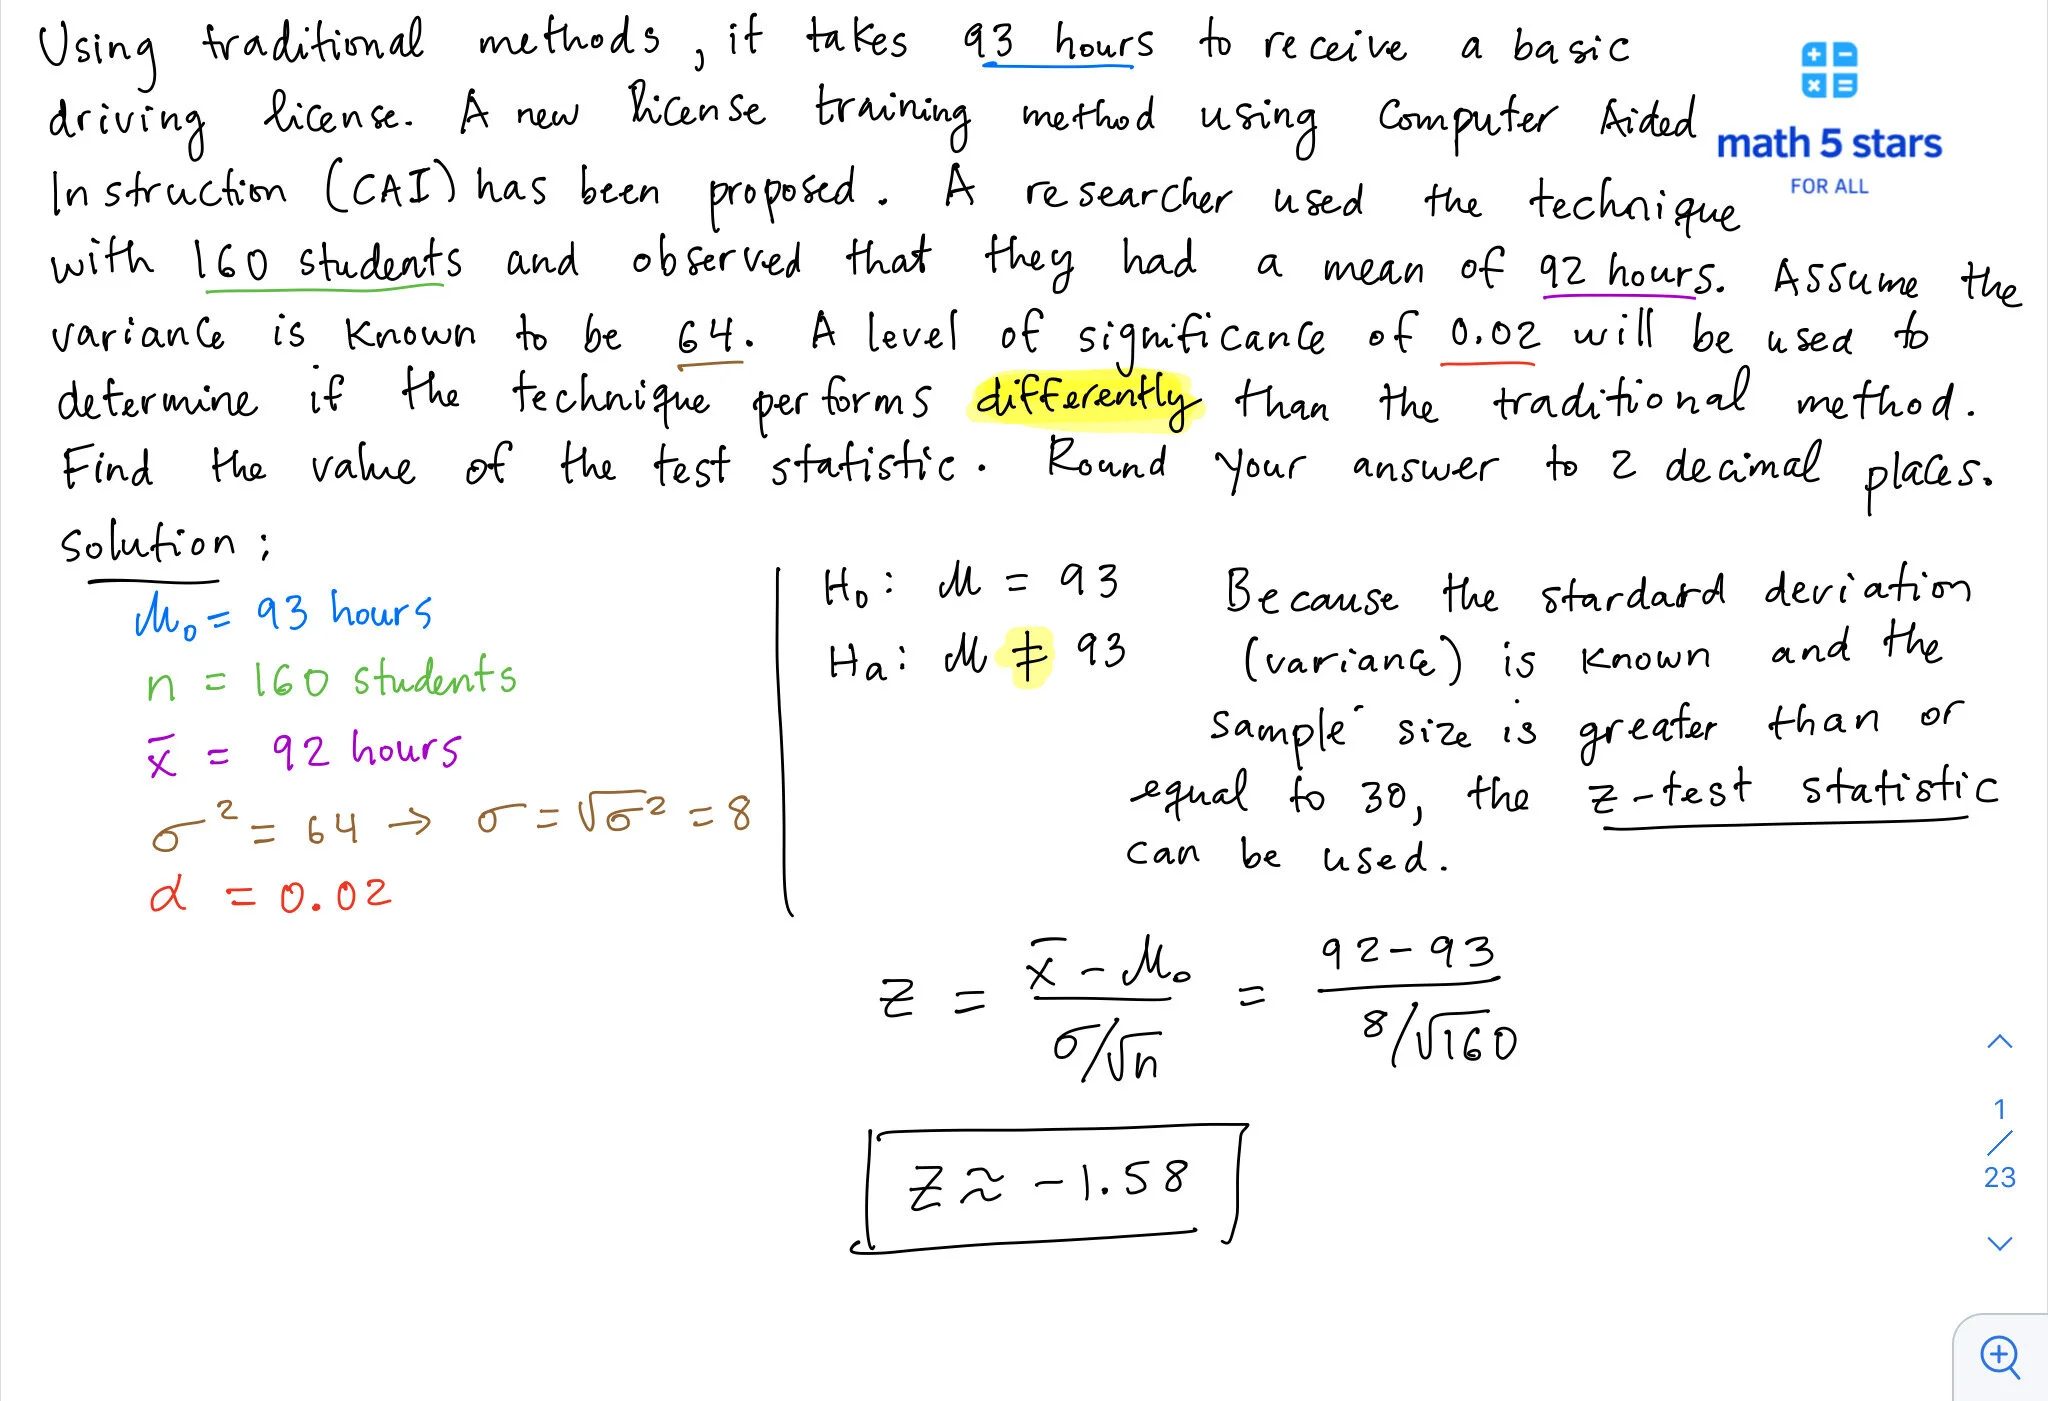 Using traditional methods, it takes 93 hours to receive a basic
driving license. A new license training method using Computer Aided
Instruction (CAI) has been proposed. A researcher used the technique
with 160 students and observed that they had a mean of 92 hours. Assume the
variance is known to be 64. A level of significance of 0.02 will be used to
determine if the technique performs differently than the traditional method.
Find the value of the test statistic. Round your answer to 2 decimal places.
math 5 stars
FOR ALL
Solution:
μ₀ = 93 hours
n = 160 students
x̄ = 92 hours
σ² = 64 → σ = √σ² = 8
α = 0.02
H₀: μ = 93
Hₐ: μ ≠ 93
Because the stardard deviation
(variance) is known and the
sample size is greater than or
equal to 30, the z-test statistic
can be used.
z = (x̄ - μ₀) / (σ/√n) = (92 - 93) / (8/√160)
z ≈ -1.58
1
/
23